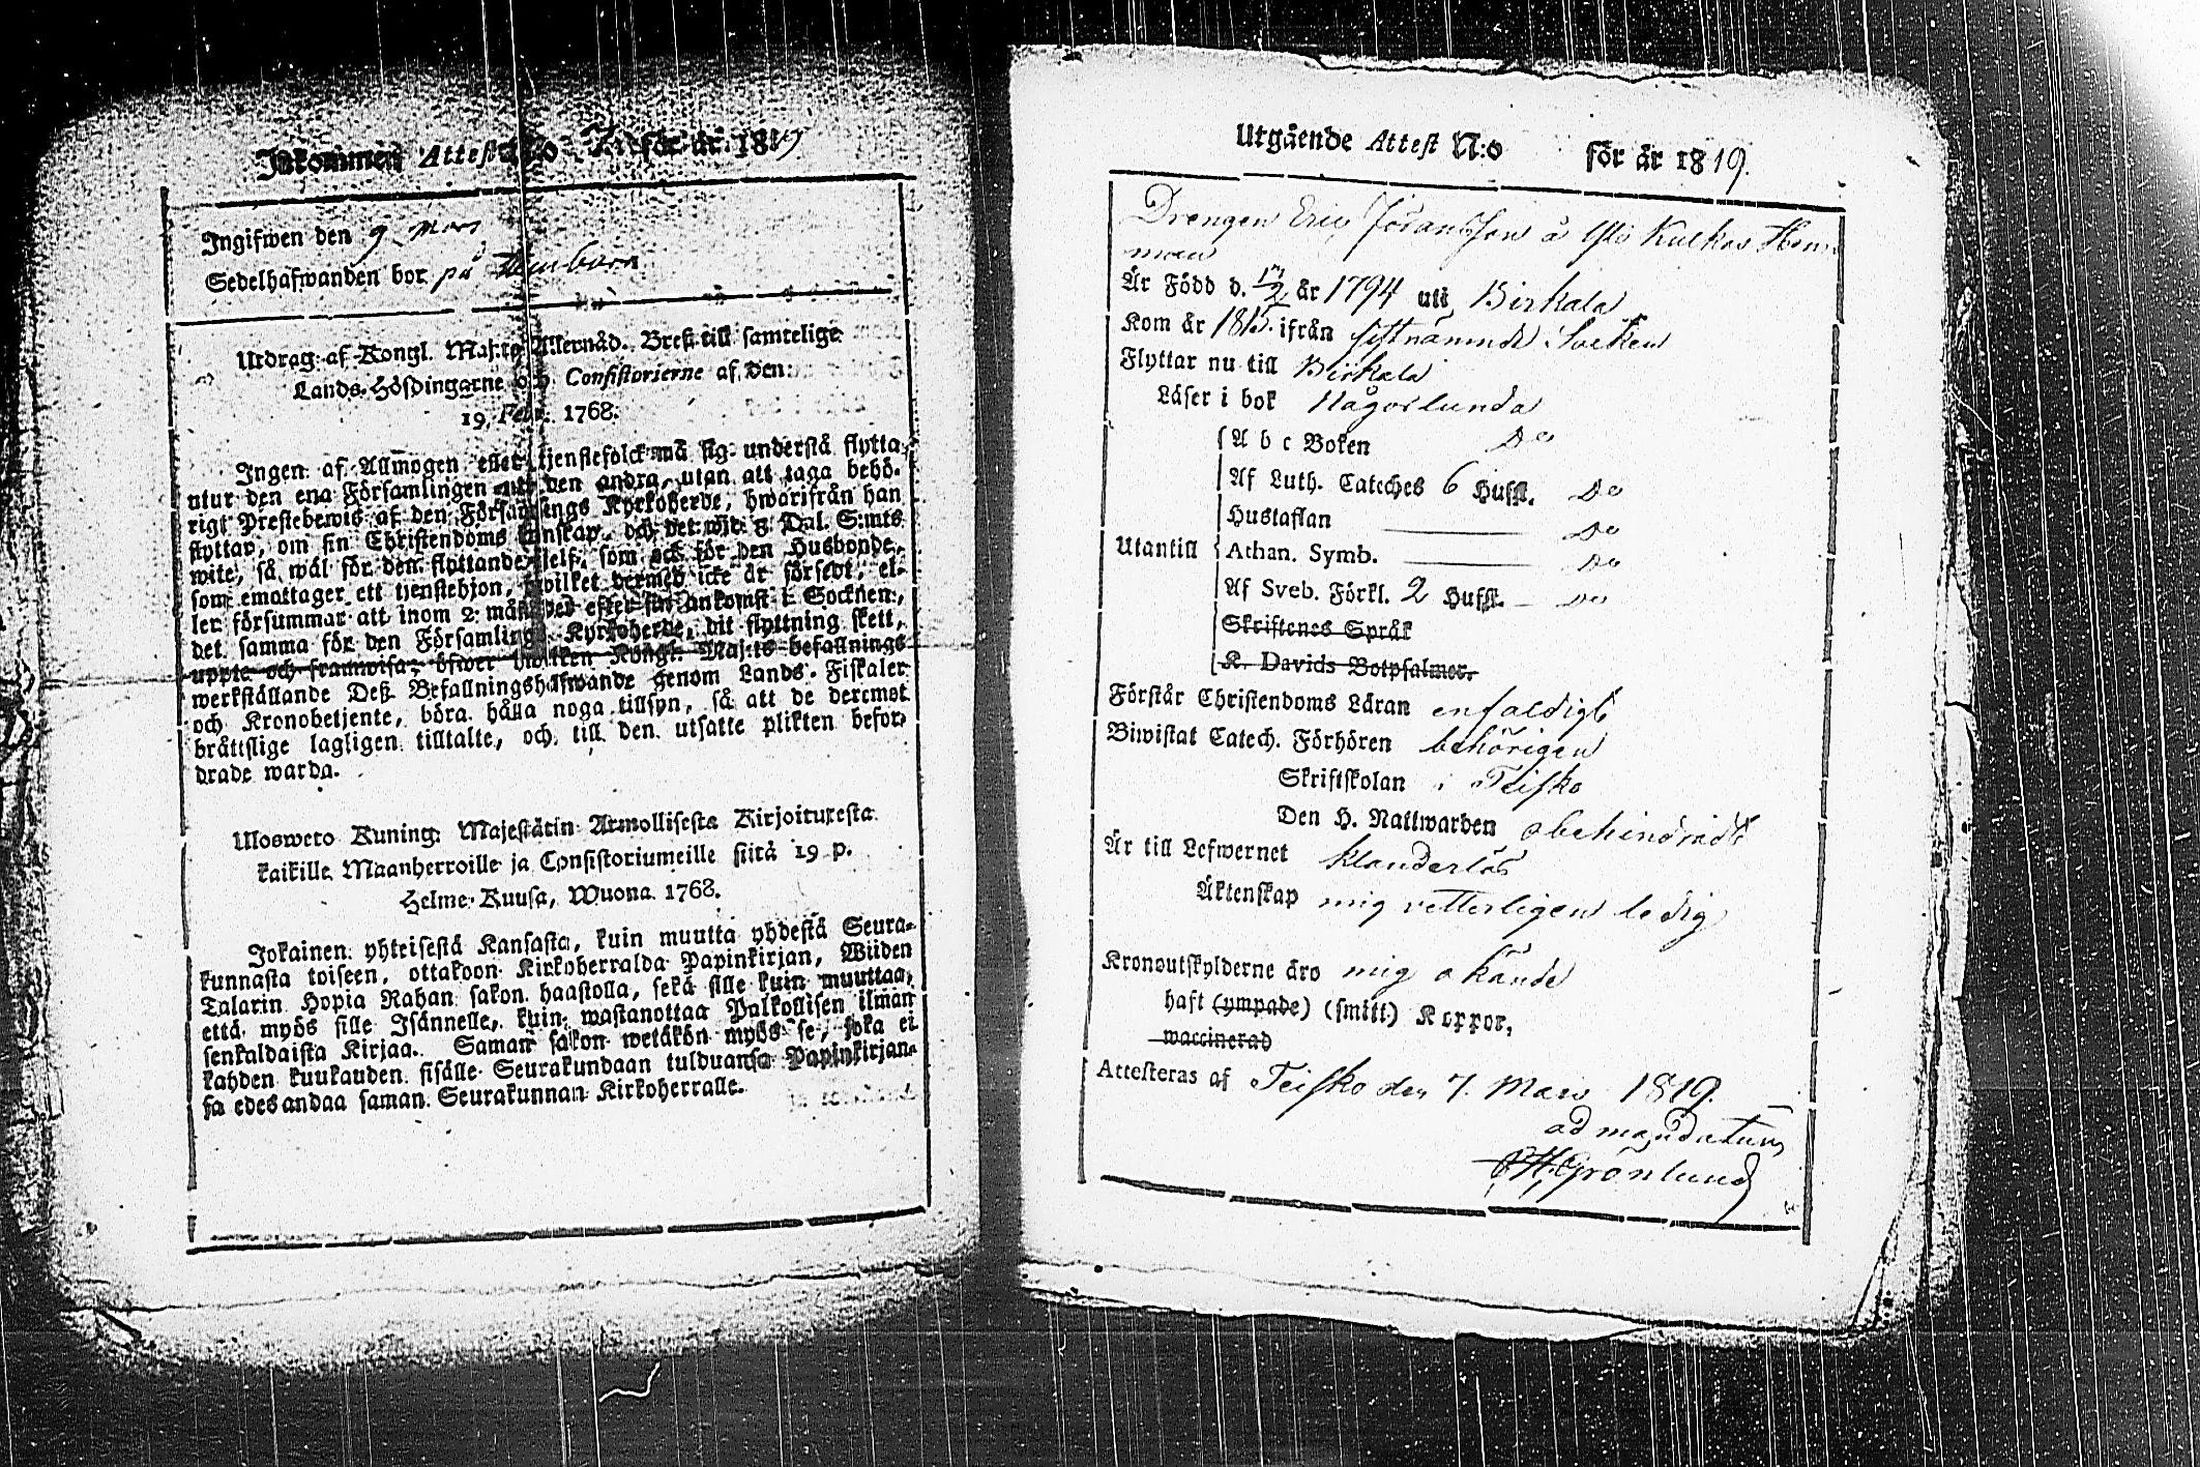 Inkommen Attest N:o 7. för år 1819
Ingifwen den 9 Mars
Sedelhafwanden bor på
Utdrag af Kongl. Maj:ts Allernåd. Bref till samtelige
Lands-Höfdingarne och Consistorierne af den
19 Febr. 1768.
Ingen af Allmogen eller tjenstefolck må sig understå flytta
utur den ena Församlingen uti den andra, utan att taga behö-
rigt Prestebewis af den Församlings Kyrkoherde, hwarifrån han
flyttar, om sin Christendoms kunskap, och det wid 5 Dal. S:mts
wite, så wäl för den flyttande self, som ock för den Husbonde,
som emottager ett tjenstehjon, hwilket dermed icke är försedt, el-
ler försummar att inom 2 månader efter sin ankomst i Socknen,
det samma för den Församlings Kyrkoherde, dit flyttning skett,
uppte och framwisa; öfwer hwilken Kongl. Maj:ts befallnings
werkställande Deß Befallningshafwande genom Lands-Fiskaler
och Kronobetjente, böra hålla noga tillsyn, så att de deremot
bråttslige lagligen tilltalte, och till den utsatte plikten befor-
drade warda.
Ulosweto Kuning. Majestätin Armollisesta Kirjoituxesta
kaikille Maanherroille ja Consistoriumeille siitä 19 p.
Helme-Kuusa, Wuona 1768.
Jokainen yhteisestä Kansasta, kuin muutta yhdestä Seura-
kunnasta toiseen, ottakoon Kirkoherralda Papinkirjan, Wiiden
Talarin Hopia Rahan sakon haastolla, sekä sille kuin muuttaa,
että myös sille Isännelle, kuin wastanottaa Palkollisen ilman
senkaldaista Kirjaa. Saman sakon wetäkön myös se, joka ei
kahden kuukauden sisälle Seurakundaan tulduansa Papinkirjan-
sa edesandaa saman Seurakunnan Kirkoherralle.
Utgående Attest N:o för år 1819.
Drengen Eric Jöransson å Kulkas Hem-
man
Är Född d. 17/2 år 1794 uti Birkala
Kom år 1815 ifrån sistnämnde Socken
Flyttar nu till Birkala
Läser i bok någorlunda
A b c Boken Do
Af Luth. Cateches 6 Hufst. Do
Hustaflan Do
Utantill Athan. Symb. Do
Af Sveb. Förkl. 2 Hufst. Do
Skriftenes Språk
K. Davids Botpsalmer.
Förstår Christendoms Läran enfaldigt
Biwistat Catech. Förhören behörigen
Skriftskolan i Teisko
Den H. Nattwarden obehindradt
Är till Lefwernet klanderlös
Äktenskap mig vetterligen ledig
Kronoutskylderne äro mig okände
haft (ympade) (smitt) Koppor,
waccinerad
Attesteras af Teisko den 7. Mars 1819.
ad mandatum
Grönlund